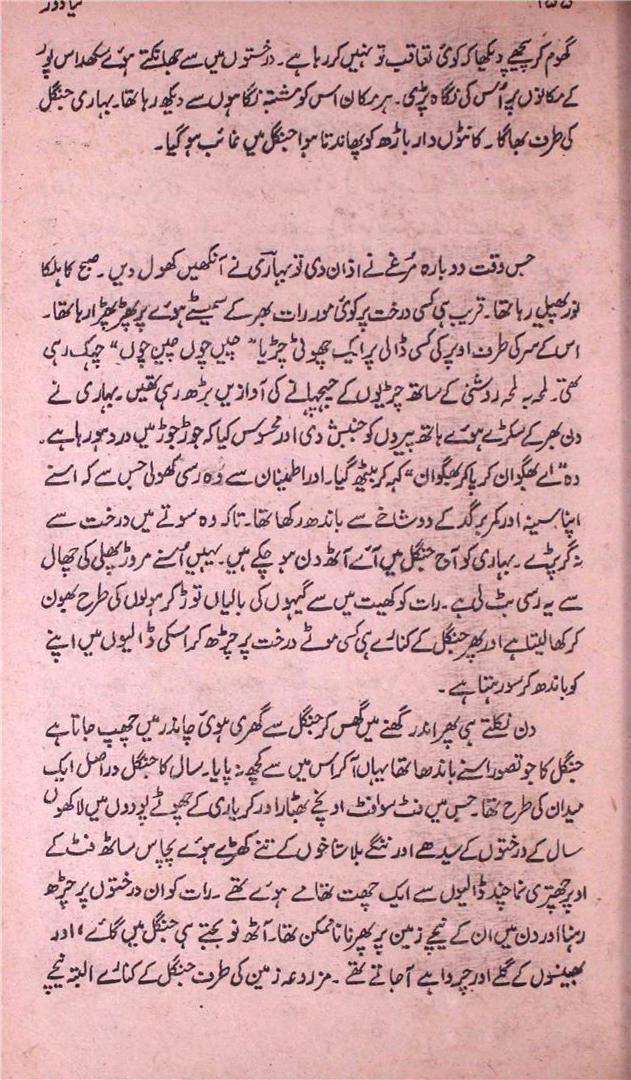 ۱۵۵ نیا دور
گھوم کر پیچھے دیکھا کہ کوئی تعاقب تو نہیں کر رہا ہے۔ درختوں میں سے جھانکتے ہوئے سکھداس پور
کے مکانوں پر اُس کی نگاہ پڑی۔ ہر مکان اس کو مشتبہ نگاہوں سے دیکھ رہا تھا۔ بہاری جنگل
کی طرف بھاگا۔ کانٹوں دار باڑھ کو پھاندتا ہوا جنگل میں غائب ہو گیا۔
جس وقت دوبارہ مُرغے نے اذان دی تو بہاری نے آنکھیں کھول دیں۔ صبح کا ہلکا
نور پھیل رہا تھا۔ قریب ہی کسی درخت پر کوئی مور رات بھر کے سمیٹے ہوئے پر پھڑپھڑا رہا تھا۔
اس کے سر کی طرف اوپر کی کسی ڈالی پر ایک چھوٹی چڑیا "چیں چوں چیں چوں" چہک رہی
تھی۔ لمحہ بہ لمحہ روشنی کے ساتھ چڑیوں کے چہچہانے کی آوازیں بڑھ رہی تھیں۔ بہاری نے
دن بھر کے سکڑے ہوئے ہاتھ پیروں کو جنبش دی اور محسوس کیا کہ جوڑ جوڑ میں درد ہو رہا ہے۔
وہ "اے بھگوان کرپا کر بھگوان" کہہ کر بیٹھ گیا۔ اور اطمینان سے وہ رسی کھولی جس سے کہ اسنے
اپنا سینہ اور کمر برگد کے دو شاخے سے باندھ رکھا تھا۔ تاکہ وہ سوتے میں درخت سے
نہ گر پڑے۔ بہاری کو آج جنگل میں آئے آٹھ دن ہو چکے ہیں۔ یہیں اُسنے مروڑ پھلی کی چھال
سے یہ رسی بٹ لی ہے۔ رات کو کھیت میں سے گیہوں کی بالیاں توڑ کر ہولوں کی طرح بھون
کر کھا لیتا ہے اور پھر جنگل کے کنارے ہی کسی موٹے درخت پر چڑھ کر اسکی ڈالیوں میں اپنے
کو باندھ کر سو رہتا ہے۔
دن نکلتے ہی پھر اندر گھنے میں گھس کر جنگل سے گھری ہوئی چاندر میں چھپ جاتا ہے
جنگل کا جو تصور اسنے باندھا تھا یہاں آ کر اس میں سے کچھ نہ پایا۔ سال کا جنگل دراصل ایک
میدان کی طرح تھا۔ جس میں فٹ سوا فٹ اونچے بھٹار اور کریاری کے چھوٹے پودوں میں لاکھوں
سال کے درختوں کے سیدھے اور ننگے بلا شاخوں کے تنے کھڑے ہوئے پچاس ساٹھ فٹ کے
اوپر چھتری نما چند ڈالیوں سے ایک چھت تھامے ہوئے تھے۔ رات کو ان درختوں پر چڑھ
رہنا اور دن میں ان کے نیچے زمین پر پھرنا ناممکن تھا۔ آٹھ نو بجتے ہی جنگل میں گائے، اور
بھینسوں کے گلے اور چرواہے آجاتے تھے۔ مزروعہ زمین کی طرف جنگل کے کنارے البتہ نیچے